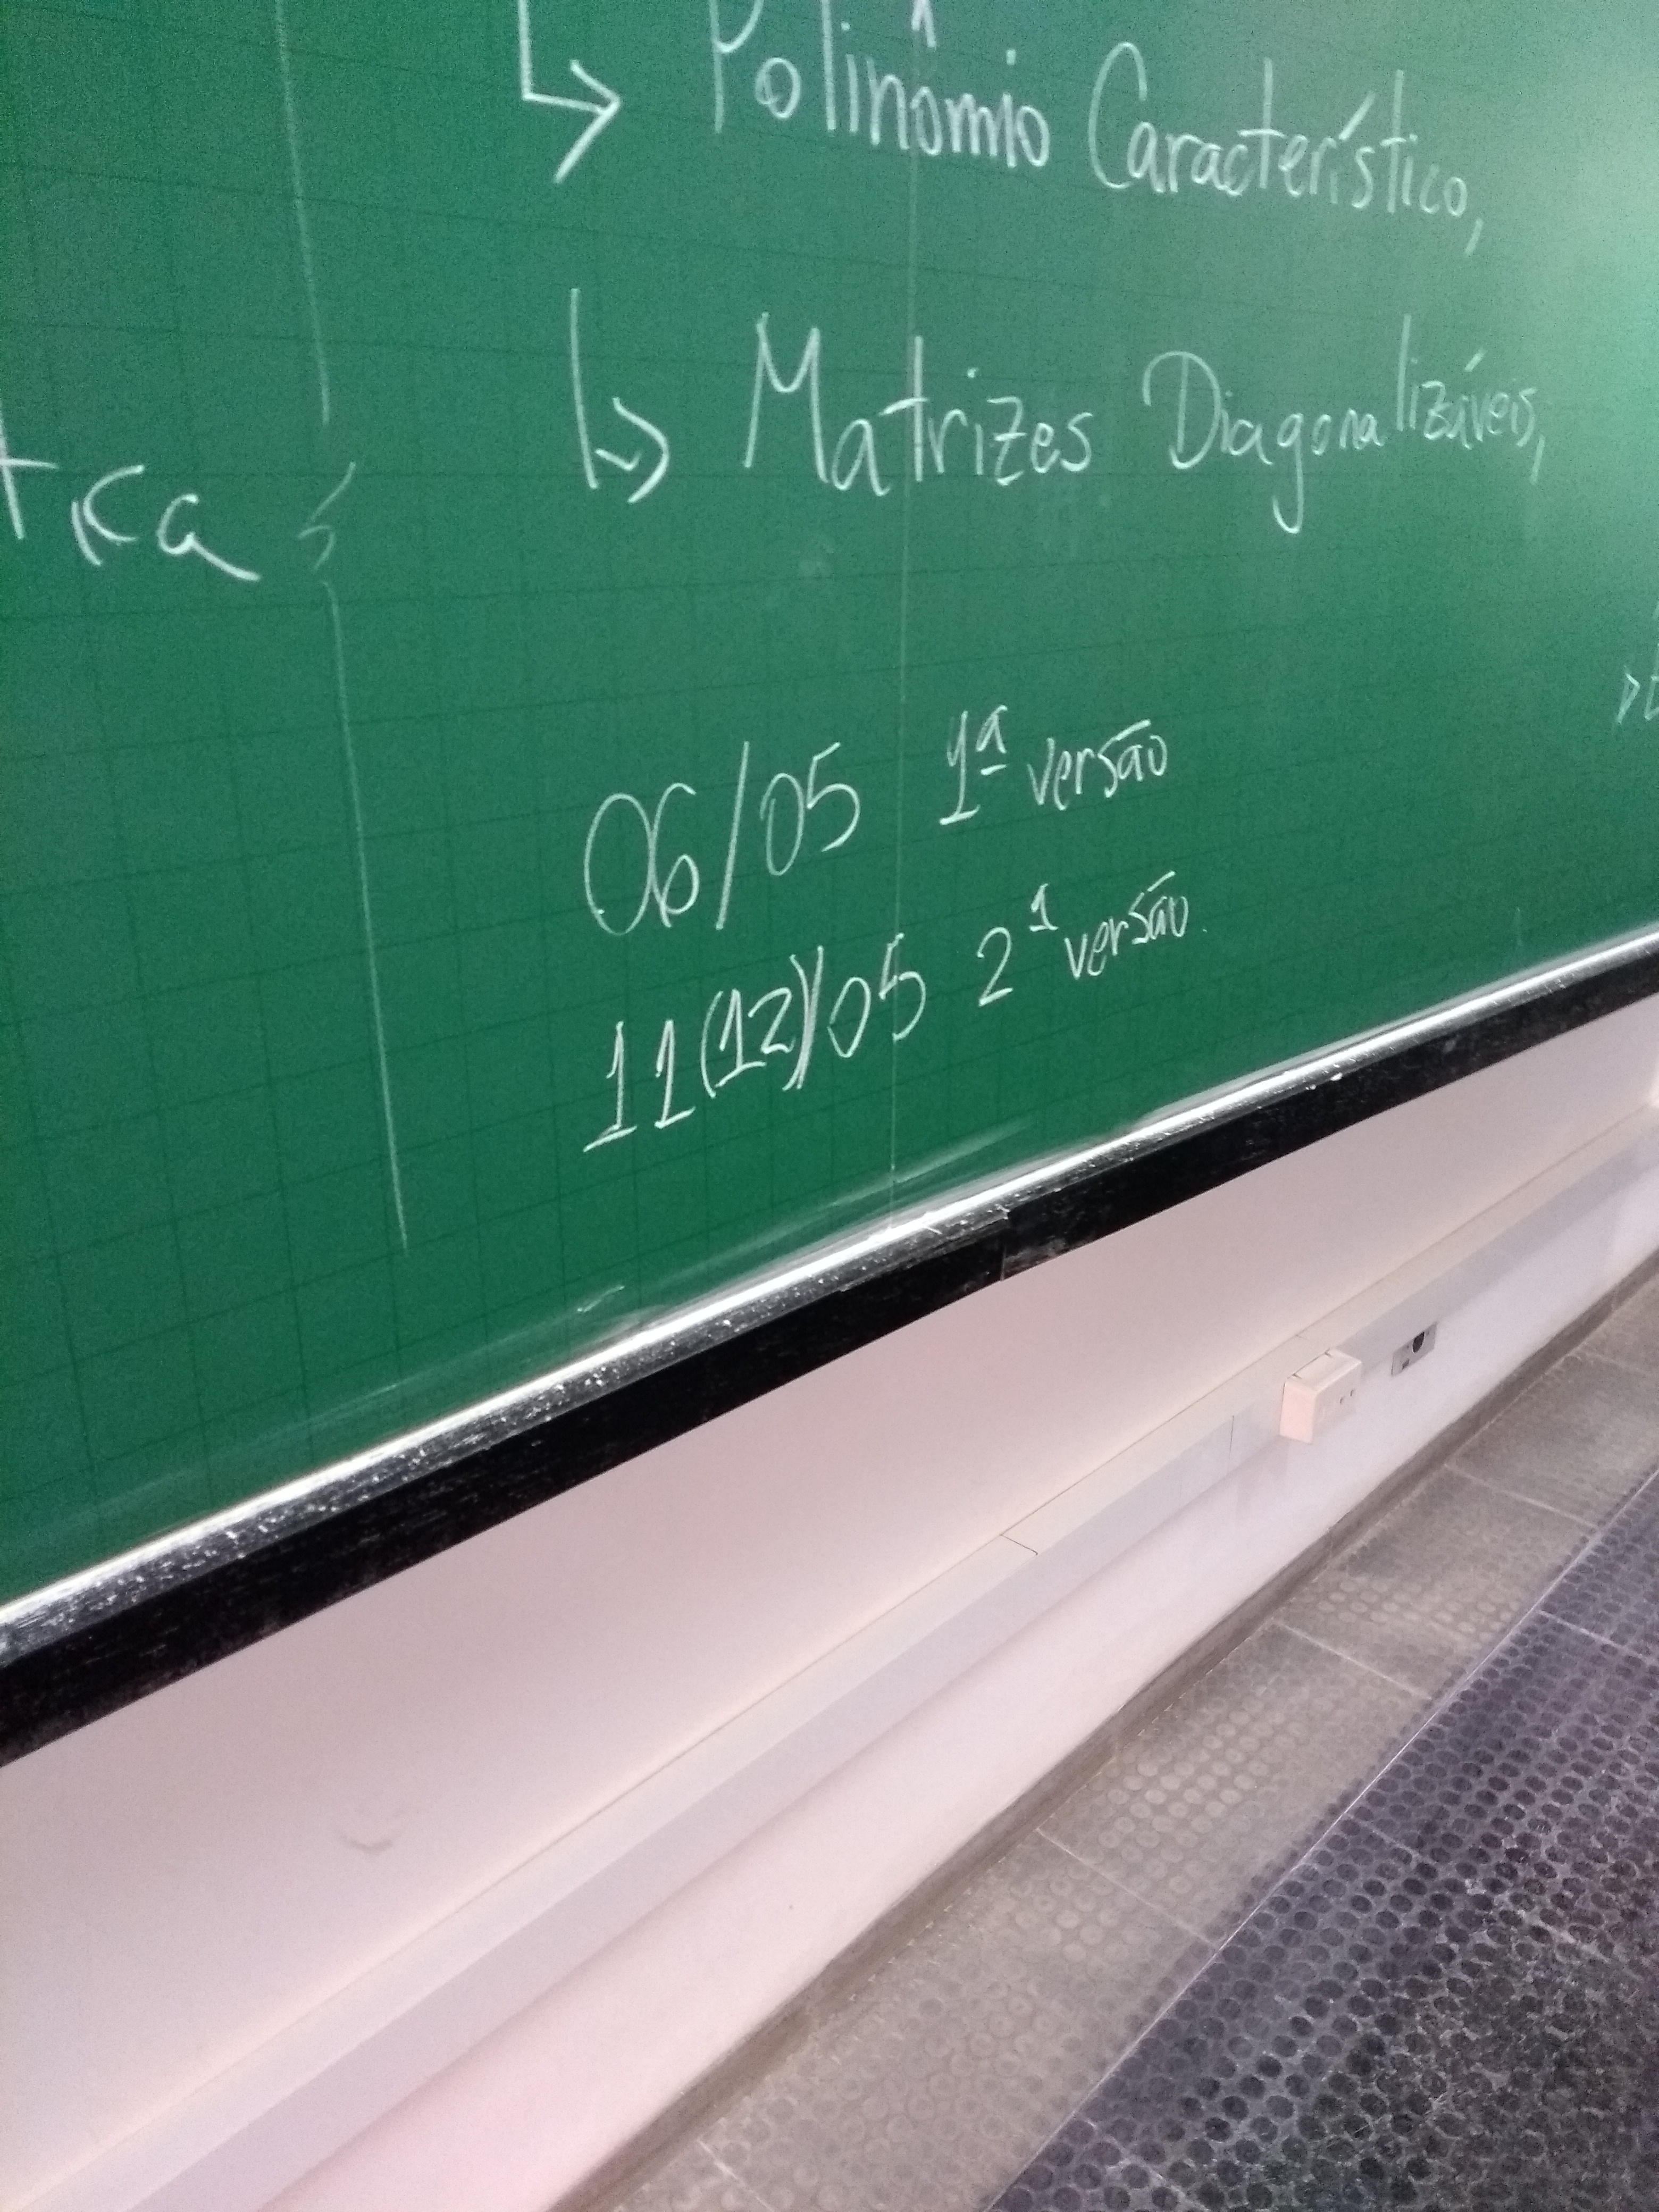 ↳ Polinômio Característico,
↳ Matrizes Diagonalizáveis,
06/05 1ª versão
11(12)/05 2ª versão.